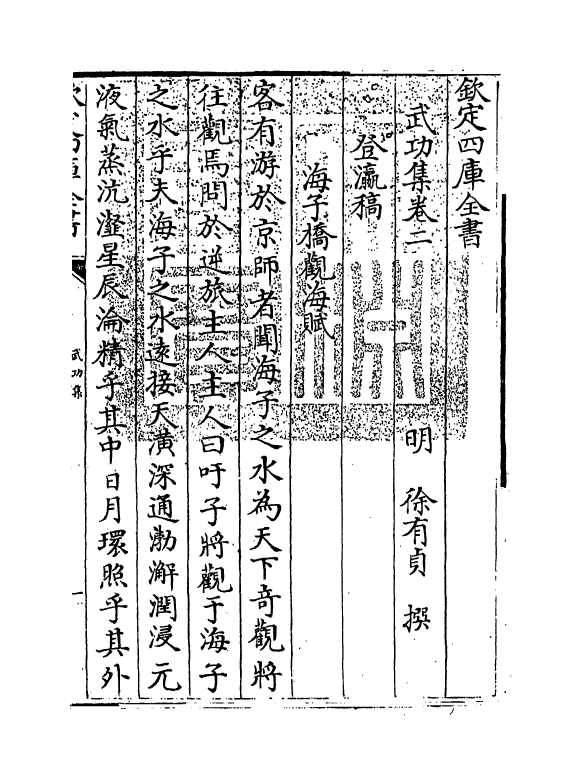 欽定四庫全書
武功集卷二 明 徐有貞 撰
登瀛稿
海子橋觀海賦
客有游於京師者聞海子之水為天下竒觀將
往觀焉問於逆旅主人主人曰吁子將觀于海子
之水乎夫海子之水遠接天潢深通渤澥潤浸元
液氣蒸沆瀣星辰淪精乎其中日月環照乎其外
武功集
一